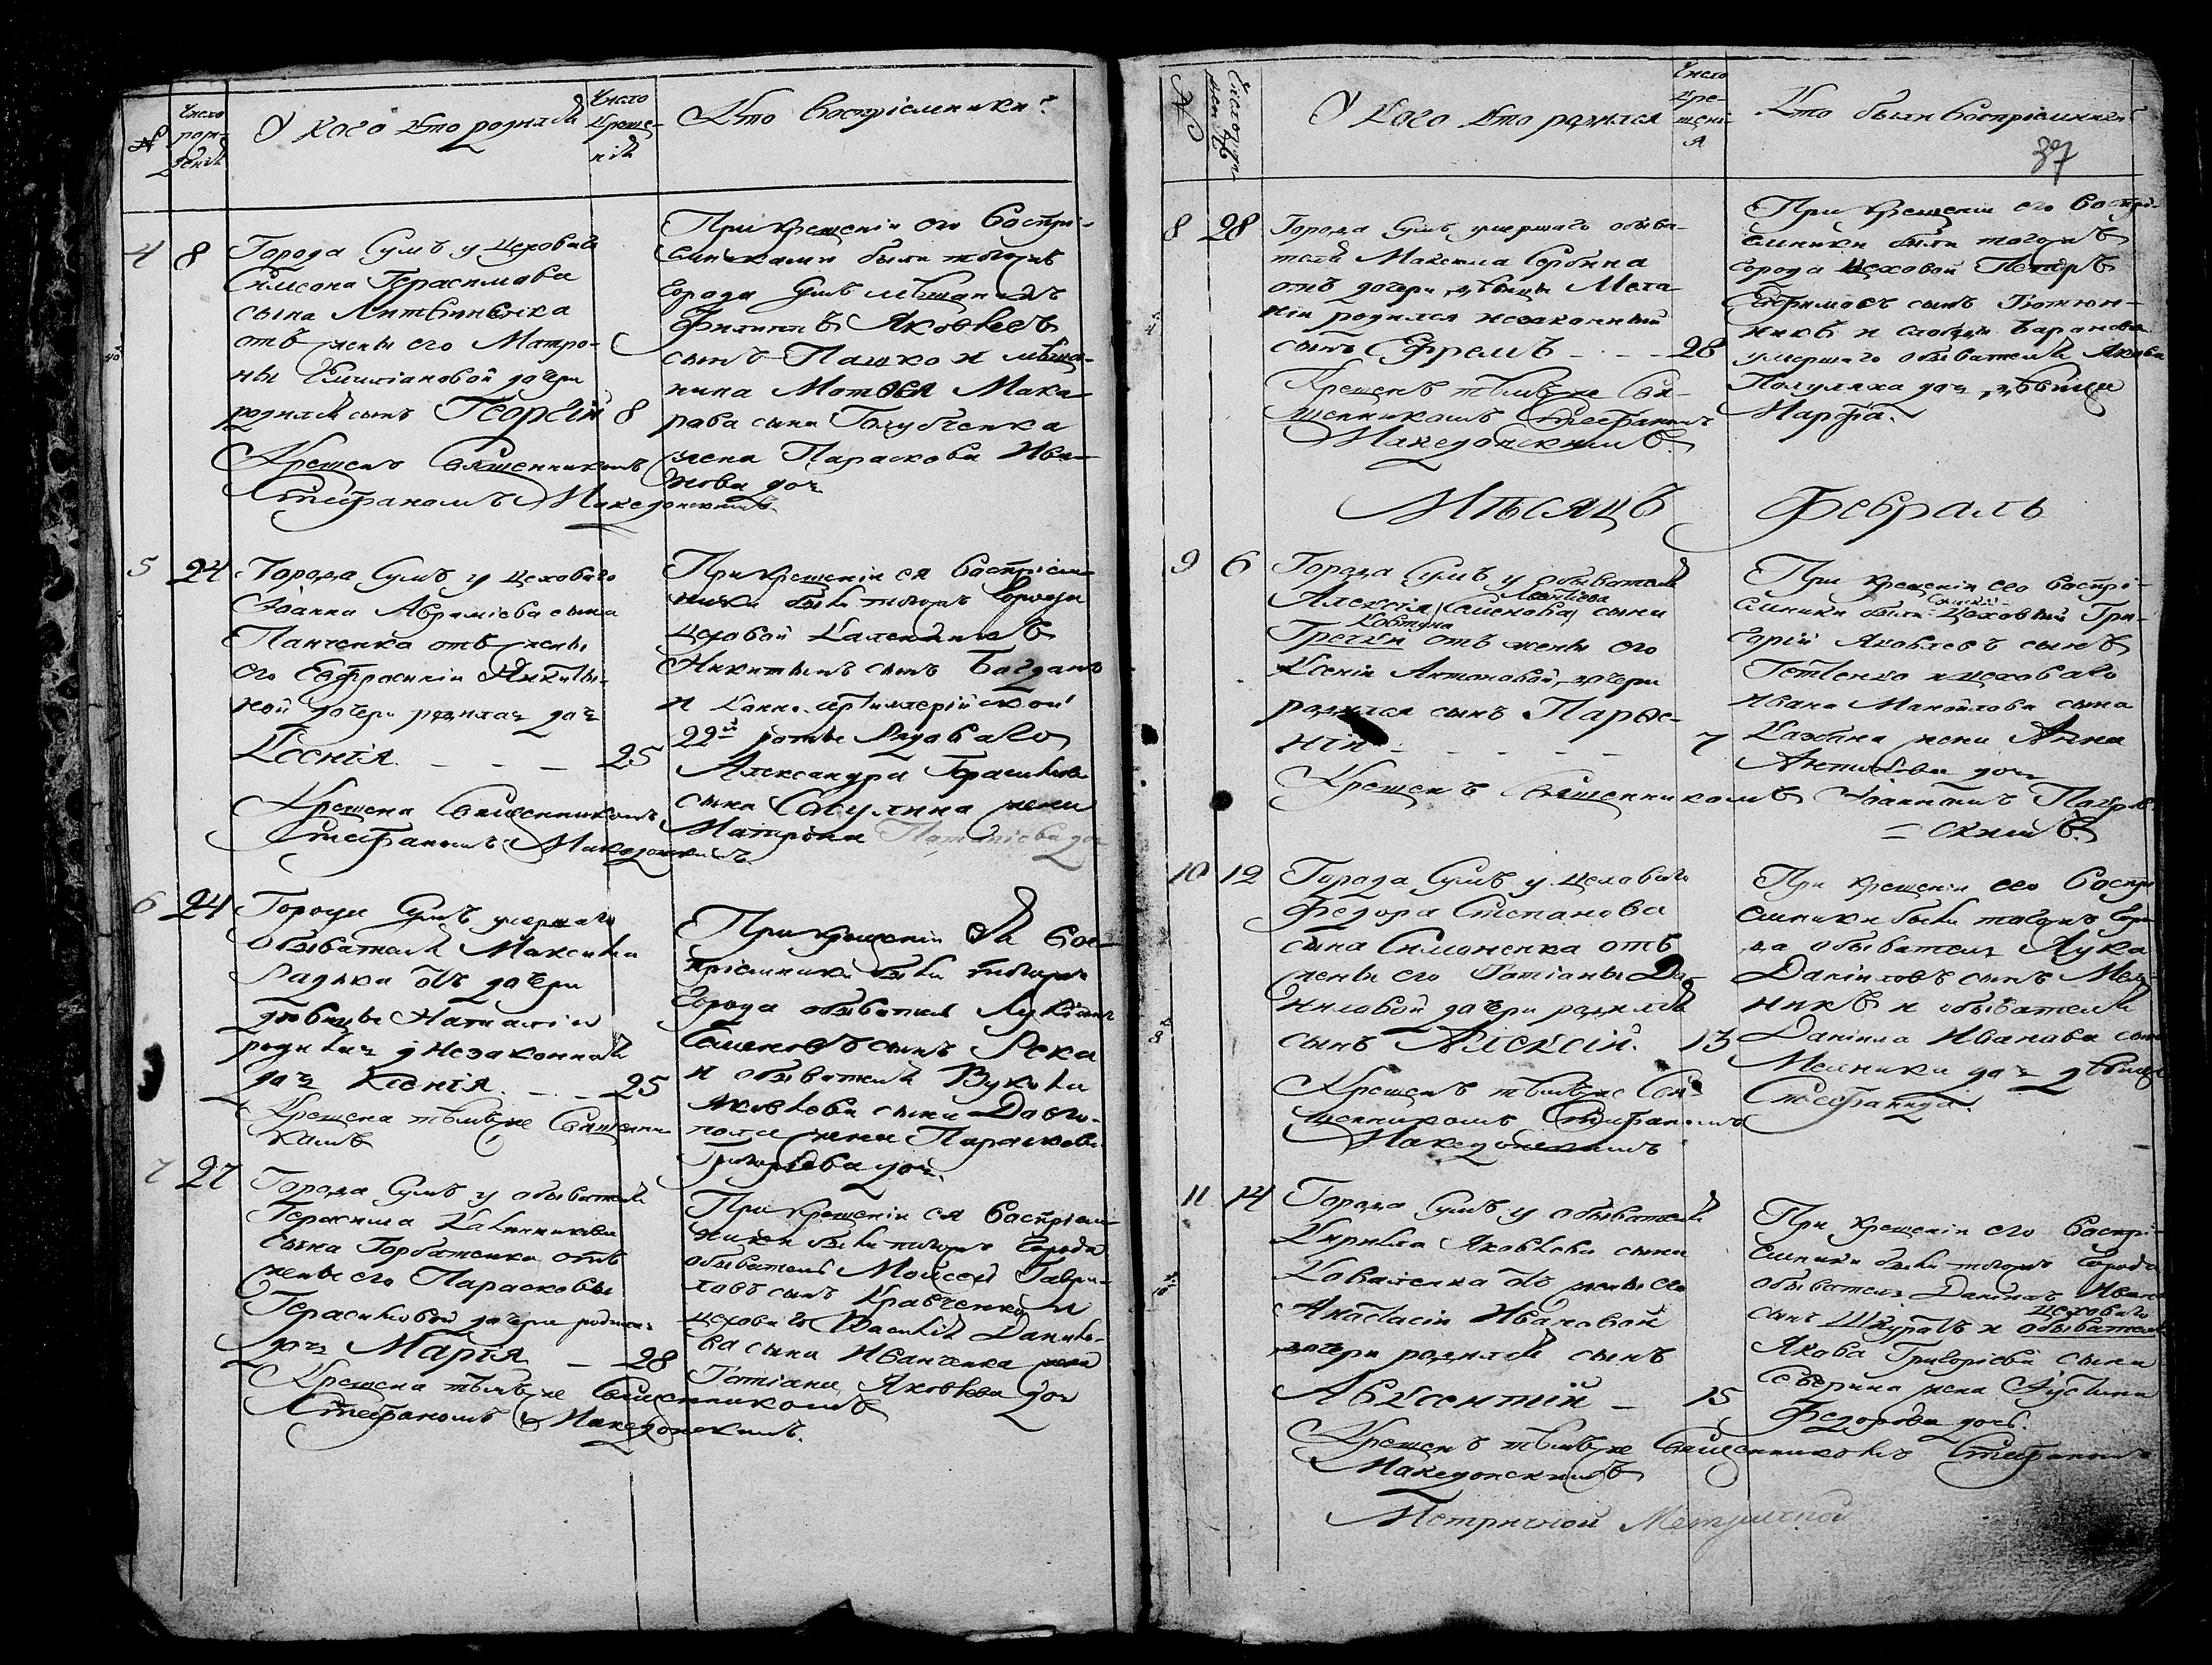 №
Число рождения
У кого кто родился
Число крещения
Кто воспріемники?
4 8
Города Сумъ у цеховаго
Симеона Герасимова
сына Литвиненка
отъ жены его Матро-
ны Емиліановой дочери
родился сынъ Георгій 8
Крещенъ Священникомъ
Стефаномъ Македонскимъ.
При крещеніи его Воспрі-
емниками были тогожъ
города Сумъ мѣщанинъ
Филиппъ Яковлевъ
сынъ Пашко и мѣща-
нина Мотвея Мака-
рова сына Голубченка
жена Параскова Ива-
нова доч
5 24
Города Сумъ у цеховаго
Іоанна Аврамієва сына
Панченка отъ жены
его Евфросиніи Никити-
ной дочери родилас доч
Ксенія 25
Крещена Священникомъ
Стефаномъ Македонскимъ.
При крещеніи ея Воспріем-
ники были тогожъ города
цеховой
Никитинъ сынъ Богданъ
и Конно-артиллерійской
22й роты Рядоваго
Александра Герасимова
сына жена
Матрона Потапіева доч
6 24
Города Сумъ умершаго
обывателя Максима
Радька отъ дочери
дѣвицы Наталіи
родилас незаконная
доч Ксенія 25
Крещена тѣмъ же Священни-
комъ
При крещеніи Ея Вос-
пріемники были тогожъ
города обыватель Лукіянъ
Семеновъ сынъ Река
и обывателя Вукола
Яковлева сына Довго-
пола жена Параскова
Григоріева доч.
7 27
Города Сумъ у обывателя
Герасима Калинникова
сына Горбатенка отъ
жены его Парасковы
Герасимовой дочери родилас
доч Марія 28
Крещена тѣмъ же Священникомъ
Стефаномъ Македонскимъ.
При крещеніи ея Воспріем-
ники были тогожъ города
обыватель Моисей Гаври-
ловъ сынъ Кравченко и
цеховаго Василія Данило-
ва сына Иванченка жена
Татіана Яковлева доч
№
У кого кто родился
Число крещения
Кто были Воспріемники
37
8 28
Города Сумъ умершаго обыва-
теля Максима Сербина
отъ дочери дѣвицы Мела-
ніи родился незаконный
сынъ Ефремъ 28
Крещенъ тѣмъ же Свя-
щенникомъ Стефаномъ
Македонскимъ.
При крещеніи его Воспрі-
емники были тогожъ
города цеховой Петръ
Ефимовъ сынъ Тютюн-
никъ и слободы Барановки
умершаго обывателя Якова
Полуляха доч дѣвица
Марфа.
Мѣсяцъ Февраль
9 6
Города Сумъ у обывателя
Леонтіева
Алексія Семенова сына
Ковтуна
Гречки отъ жены его
Ксеніи Антоновой дочери
родился сынъ Парфе-
ній 7
Крещенъ Священникомъ Іоанномъ
скимъ.
При крещеніи его Воспрі-
емники были цеховый Гри-
горій Яковлевъ сынъ
и цеховаго
Ивана Манойлова сына
жена Анна
доч
10 12
Города Сумъ у цеховаго
Федора Степанова
сына Симоненка отъ
жены его Татіаны Да-
ниловой дочери родился
сынъ Алексій. 13
Крещенъ тѣмъ же Свя-
щенникомъ Стефаномъ
Македонскимъ
При крещеніи его Воспрі-
емники были тогожъ горо-
да обыватель Лука
Даніиловъ сынъ Мель-
никъ и обывателя
Даніила Иванова сына
Мелника доч дѣвица
Стефанида.
11 14
Города Сумъ у обывателя
Кирилла Яковлева сына
Коваленка отъ жены его
Анастасіи Ивановой
дочери родился сынъ
Авксентій 15
Крещенъ тѣмъ же Священникомъ Стефаномъ
Македонскимъ
При крещеніи его Воспрі-
емники были тогожъ города
обыватель Даніилъ Иванов
цеховаго
сынъ Шкуратъ и обывателя
Якова Григоріева сына
Северина жена Іустина
Федорова дочь.
Метричной Метричной